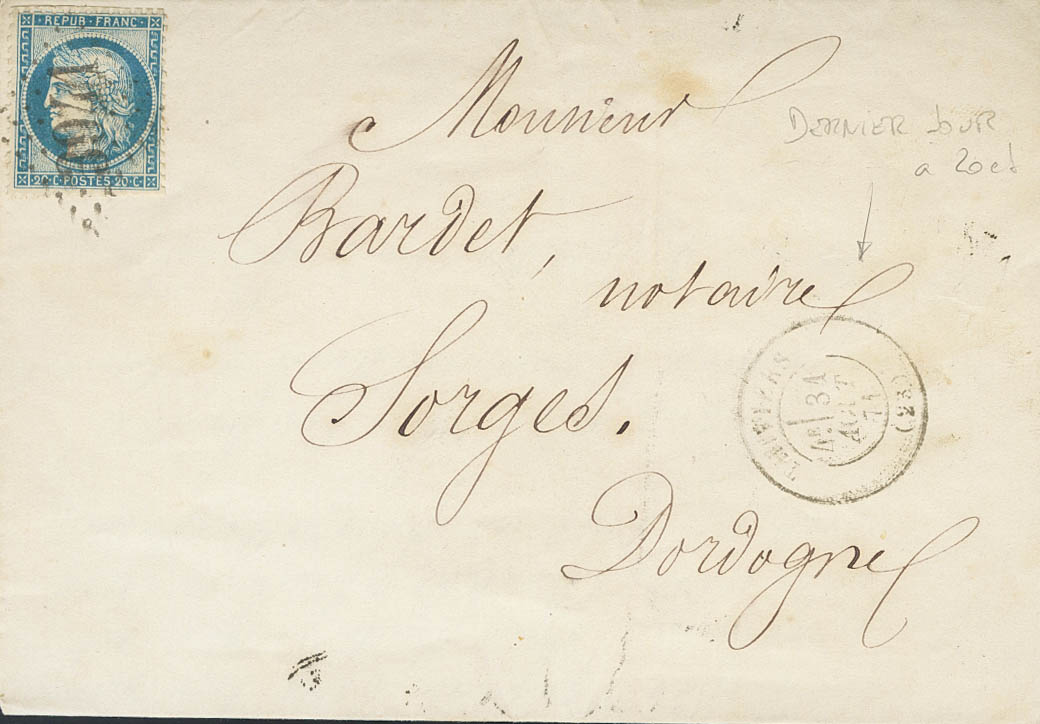 REPUB · FRANC ·
20 · C · POSTES 20 · C ·
a Monsieur
Bardet,
notaire
Sorges.
Dordogne
DERNIER JOUR
a 20ct
THIVIERS
4E 31
AOUT
71
(23)